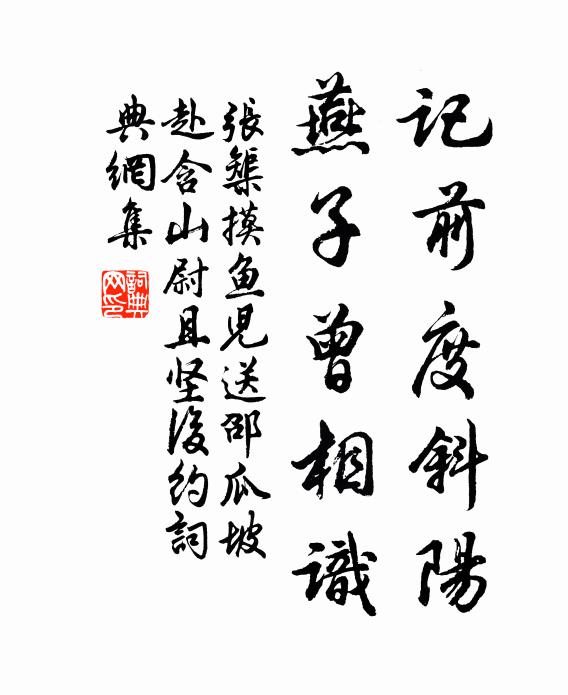 記前度斜陽
燕子曾相識
張榘摸鱼児送邵瓜坡
赴含山尉且坚後約詞
典網集
詞典
网印